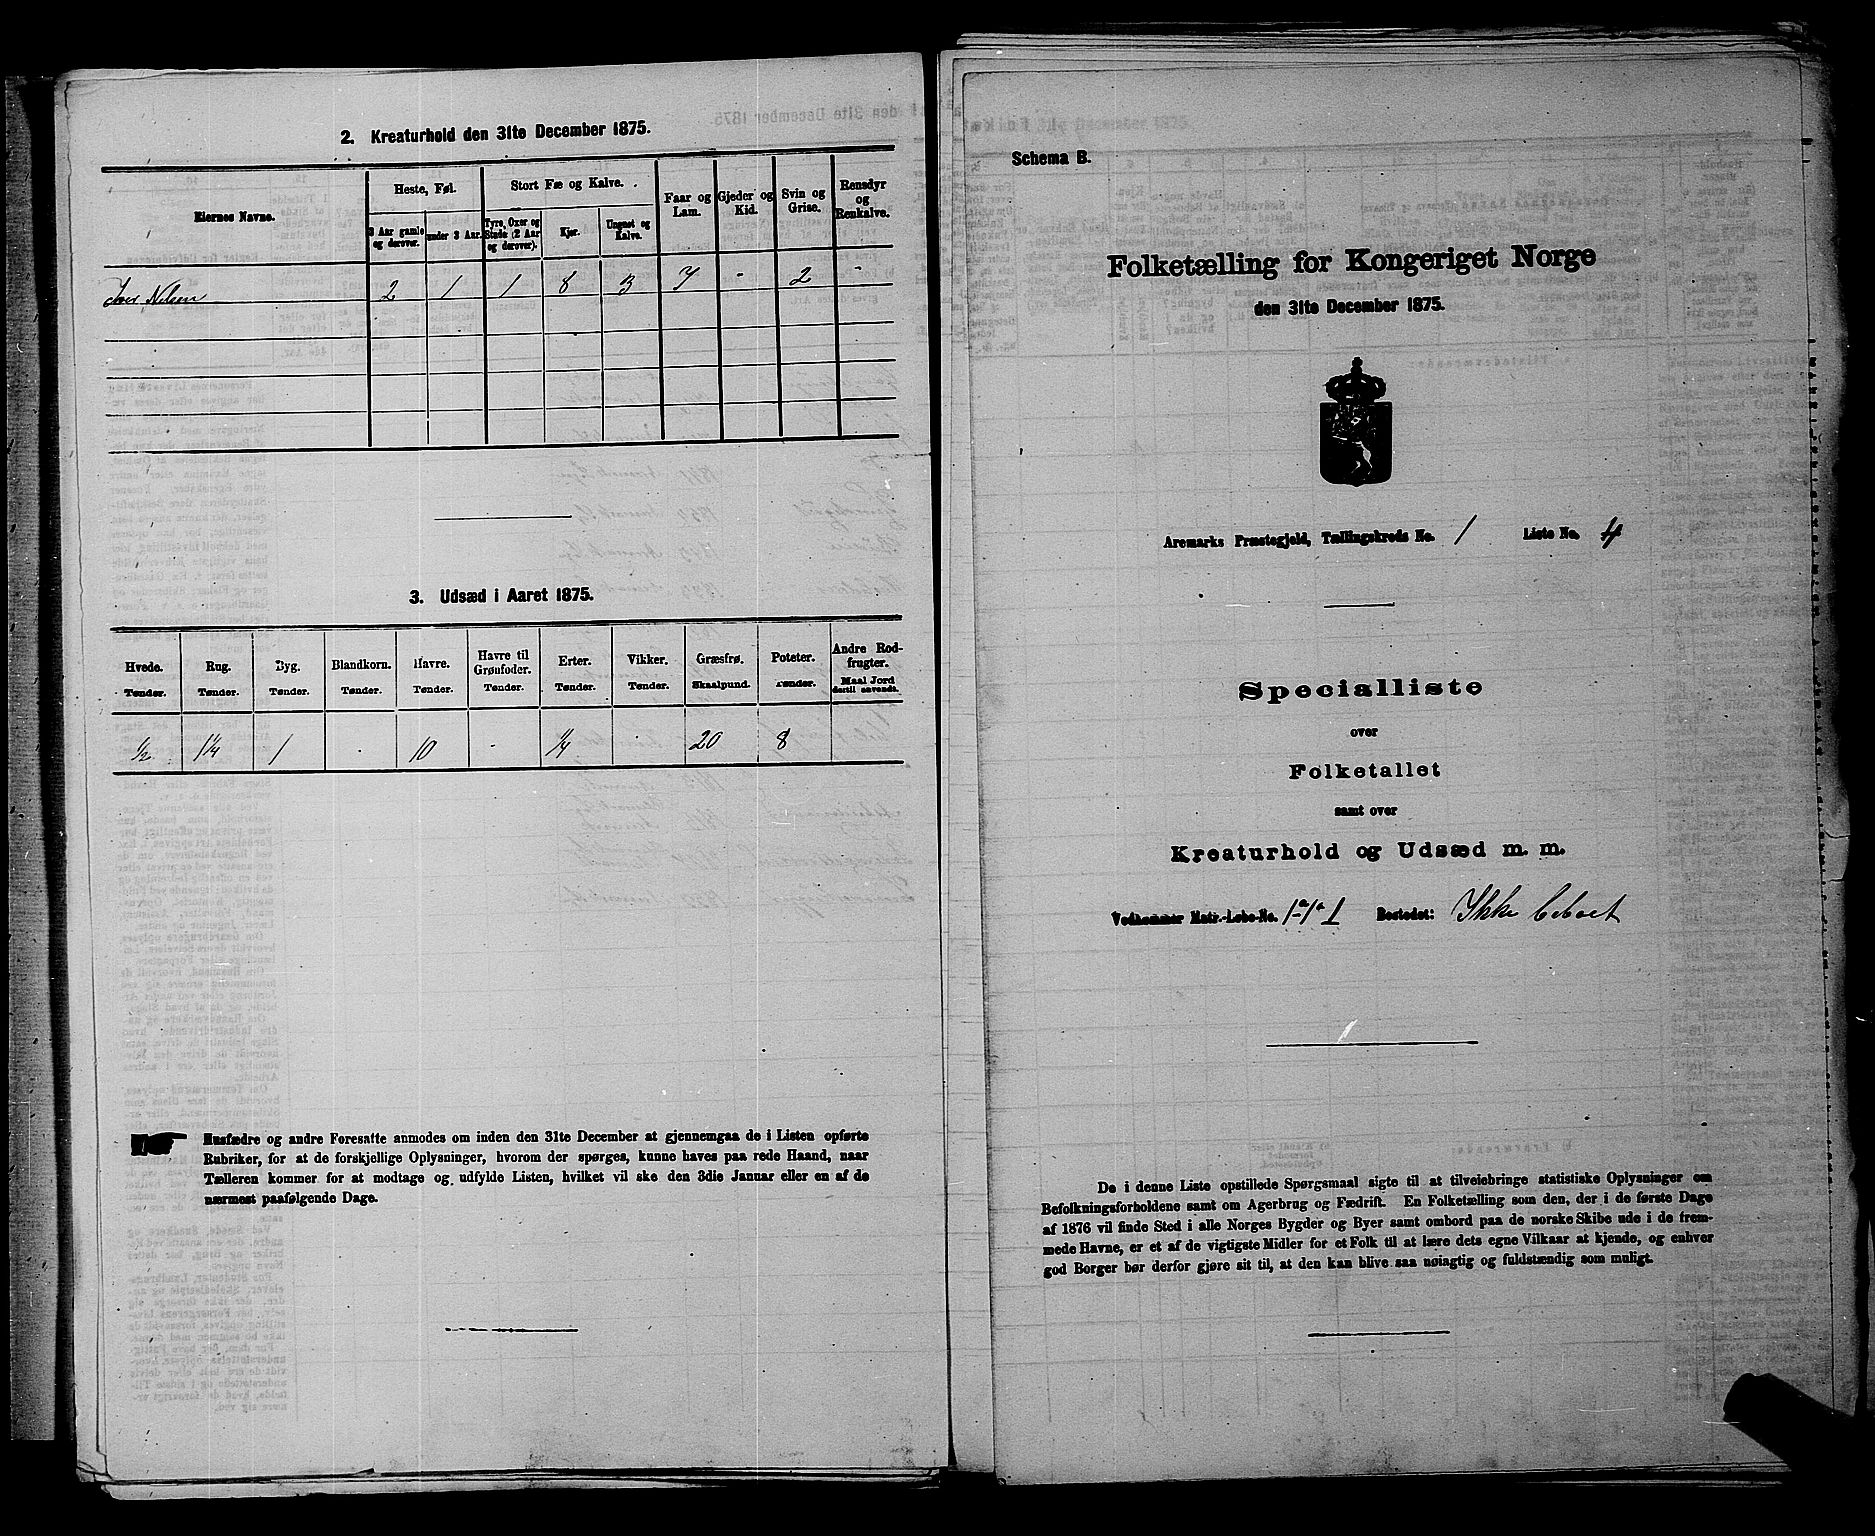 2. Kreaturhold den 31te December 1875.
Eiernes Navne.
Heste, Føl.
3 Aar gamle og derover.
under 3 Aar.
Stort Fæ og Kalve.
Tyre, Oxer og Stude (2 Aar og derover).
Kjør.
Ungnøt og Kalve.
Faar og Lam.
Gjeder og Kid.
Svin og Grise.
Rensdyr og Renkalve.
Iver Nilsen 2 1 1 8 3 7 - 2 -
3. Udsæd i Aaret 1875.
Hvede. Tønder.
Rug. Tønder.
Byg. Tønder.
Blandkorn. Tønder.
Havre. Tønder.
Havre til Grønfoder. Tønder.
Erter. Tønder.
Vikker. Tønder.
Græsfrø. Skaalpund.
Poteter. Tønder.
Andre Rodfrugter. Maal Jord dertil anvendt.
1/2 1 1/4 1 - 10 - 1/4 - 20 8
Husfædre og andre Foresatte anmodes om inden den 31te December at gjennemgaa de i Listen opførte
Rubriker, for at de forskjellige Oplysninger, hvorom der spørges, kunne haves paa rede Haand, naar
Tælleren kommer for at modtage og udfylde Listen, hvilket vil ske den 3die Januar eller en af de
nærmest paafølgende Dage.
Schema B.
Folketælling for Kongeriget Norge
den 31te December 1875.
Aremarks Præstegjeld, Tællingskreds No. 1 Liste No. 4
Specialliste
over
Folketallet
samt over
Kreaturhold og Udsæd m. m.
Vedkommer Matr.-Løbe-No. 1a-1a 1 Bostedet: Ikke beboet
De i denne Liste opstillede Spørgsmaal sigte til at tilveiebringe statistiske Oplysninger om
Befolkningsforholdene samt om Agerbrug og Fædrift. En Folketælling som den, der i de første Dage
af 1876 vil finde Sted i alle Norges Bygder og Byer samt ombord paa de norske Skibe ude i de frem-
mede Havne, er et af de vigtigste Midler for et Folk til at lære dets egne Vilkaar at kjende, og enhver
god Borger bør derfor gjøre sit til, at den kan blive saa nøiagtig og fuldstændig som muligt.